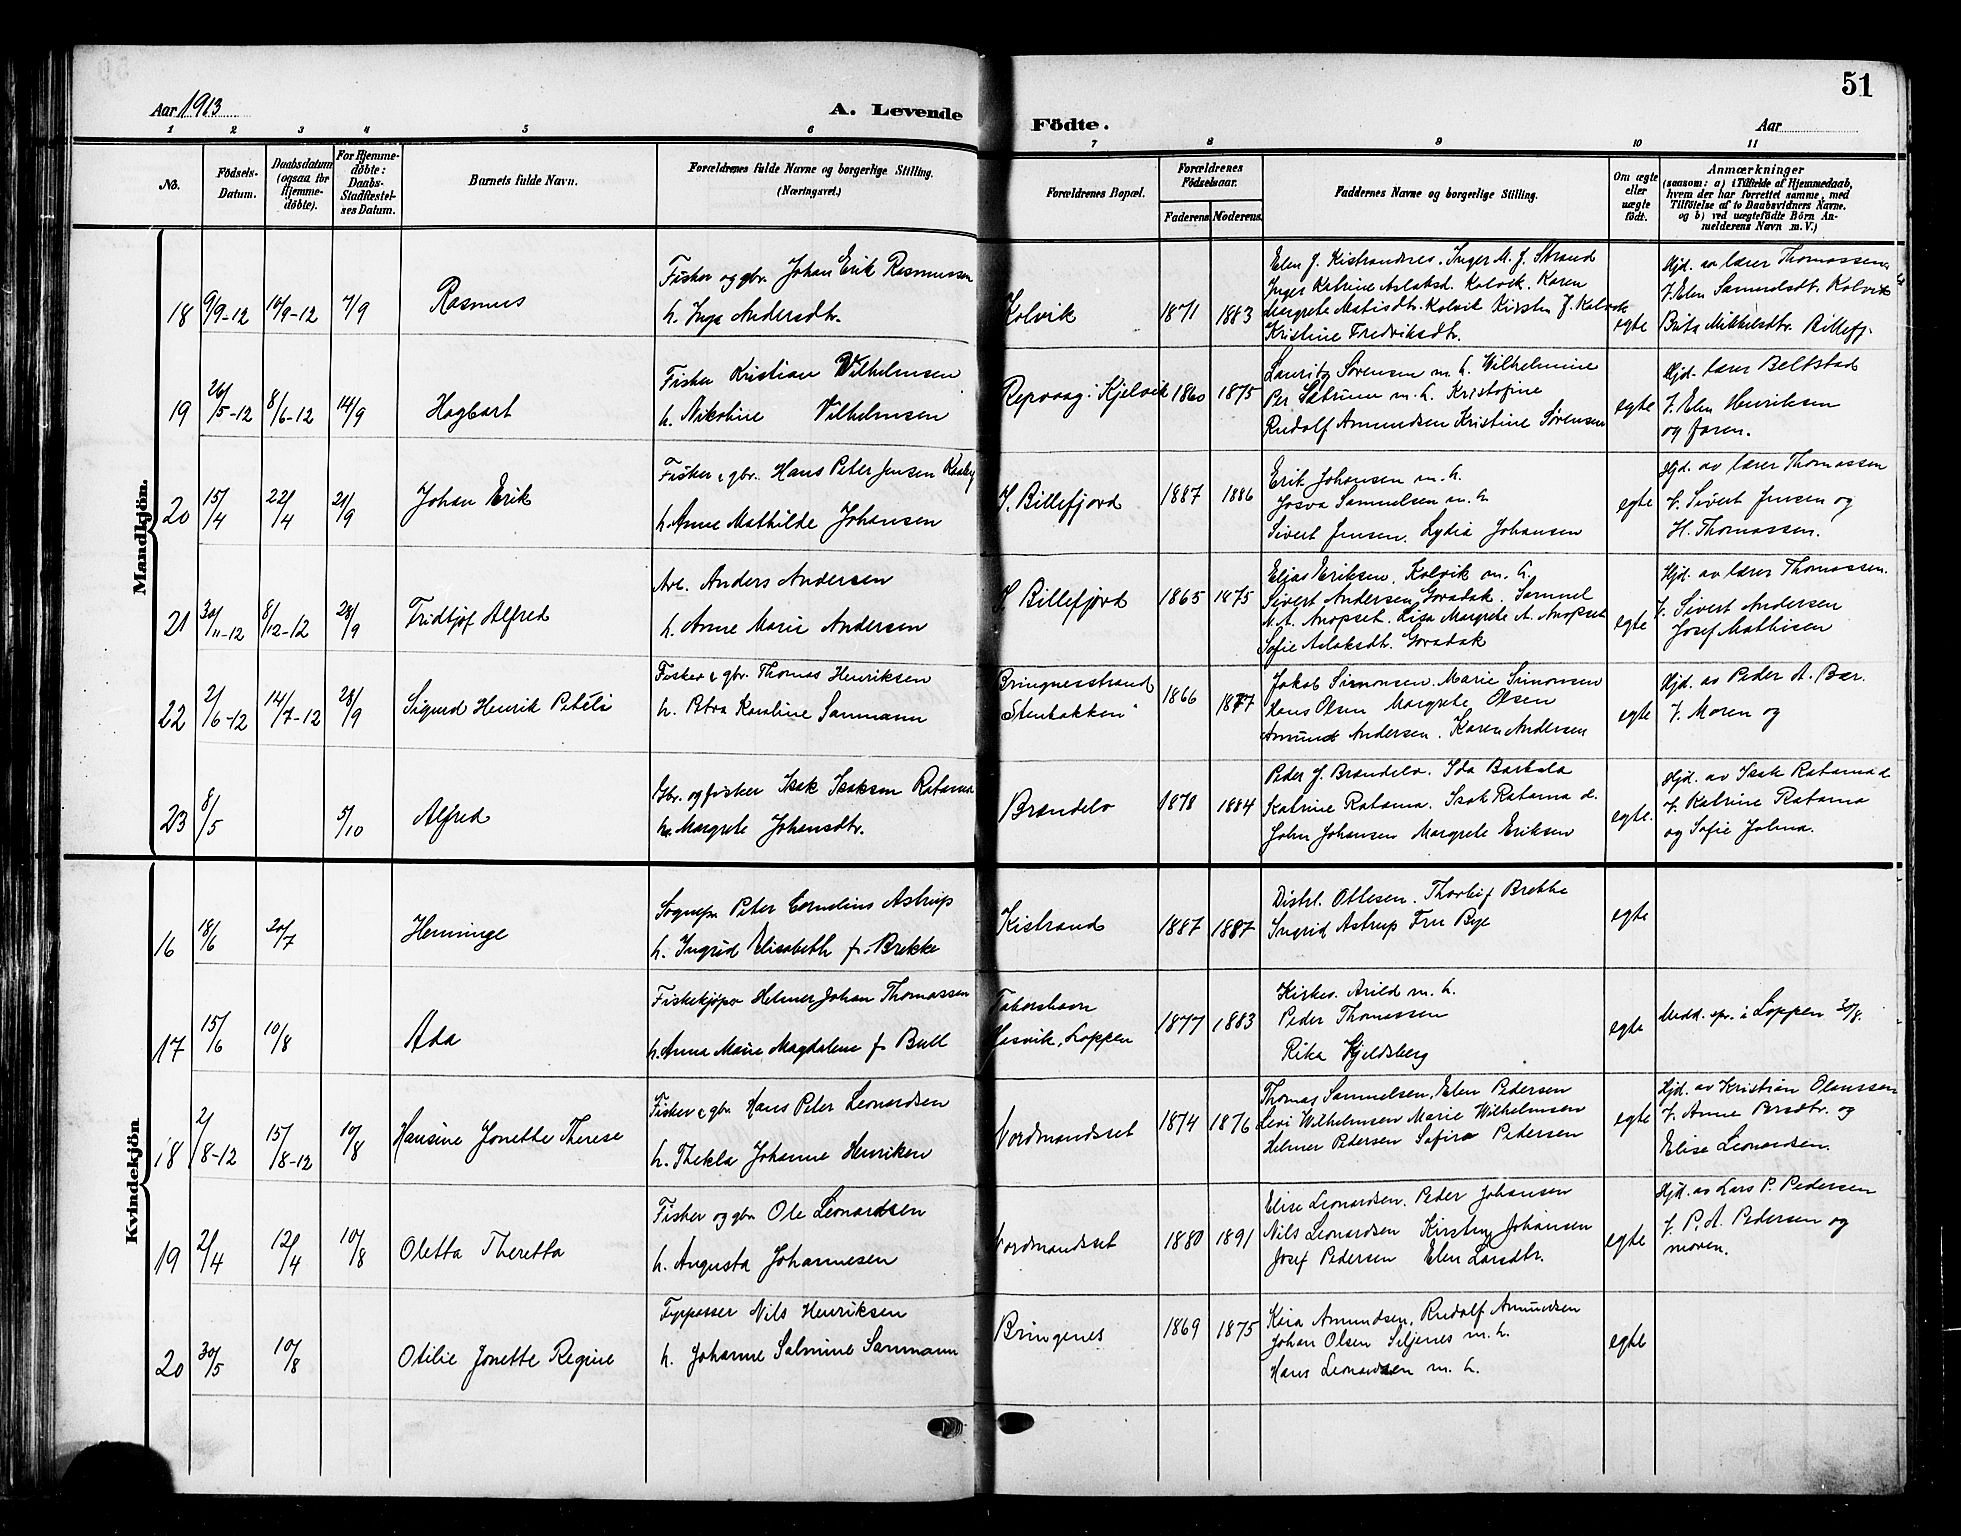 51
Aar 1913
A. Levende
Födte.
Aar
1 2 3 4 5 6 7 8 9 10 11
No.
Födsels-Datum.
Daabsdatum (ogsaa for Hjemme-döbte).
For Hjemme-döbte: Daabs-Stadfæstel-ses Datum.
Barnets fulde Navn.
Forældrenes fulde Navne og borgerlige Stilling. (Næringsvei.)
Forældrenes Bopæl.
Forældrenes Födselsaar.
Faderens Moderens.
Faddernes Navne og borgerlige Stilling.
Om ægte eller uægte födt.
Anmærkninger
(saasom: a) i Tilfælde af Hjemmedaab,
hvem der har forrettet samme, med
Tilföielse af to Daabsvidners Navne.
og b) ved uægtefödte Börn An-
melderens Navn m. V.)
Mandkjön.
18 9/9-12 10/9-12 7/9 Rasmus
Fisker og gbr. Johan Erik Rasmussen
h. Inga Andersdtr.
Kolvik 1871 1883
Elen J. Kistrandnes. Inger M. J. Strand
Inger Katrine Aslaksd. Kolvik. Karen
Margrete Matisdtr. Kolvik Kirsten J. Kolvik
Kristine Fredriksdtr.
egte
Hjd. av lærer Thomassen
V. Elen Samuelsdt. Kolvik
Brita Mikkelsdtr. Billefj.
19 26/5-12 8/6-12 14/9 Hagbart
Fisker Kristian Wilhelmsen
h. Nikoline Vilhelmsen
Repvaag i Kjelvik 1860 1875
Lauritz Sørensen m. h. Wilhelmine
Per Sætrum m. h. Kristofine
Rudolf Amundsen Kristine Sørensen
egte
Hjd. lærer Belkstad
V. Elen Henriksen
og faren.
20 15/4 22/4 21/9 Johan Erik
Fisker & gbr. Hans Peter Jensen
h. Anne Mathilde Johansen
S. Billefjord 1887 1886
Erik Johansen m. h.
Josva Samuelsen m. h.
Sivert Jensen. Lydia Johansen
egte
Hjd. av lærer Thomassen
V. Sivert Jensen og
H. Thomassen.
21 30/11-12 8/12-12 28/9 Fridtjof Alfred
Arb. Anders Andersen
h. Anne Marie Andersen
S. Billefjord 1865 1875
Elias Eriksen, Kolvik m. h.
Sivert Andersen Goradak. Samuel
M. A. Anopset. Lisa Margrete A. Anopset
Sofie Aslaksdt. Goradak
egte
Hjd. av lærer Thomassen.
V. Sivert Andersen
Josef Mathisen
22 2/6-12 14/7-12 28/9 Sigurd Henrik Peteli
Fisker & gbr. Thomas Henriksen
h. Petra Karoline Sanmann
Bringnesstrand
"Stenbakken" 1866 1877
Jakob Simonsen. Marie Simonsen
Hans Olsen Margrete Olsen
Amund Andersen. Karen Andersen
egte
Hjd. av Peder A. Bær.
V. Moren og
23 8/5 5/10 Alfred
Gbr. og fisker Isak Isaksen Ratama
h. Margrete Johansdtr.
Brandelv 1878 1884
Peder J. Brandelv. Ida Barkala
Katrine Ratama. Isak Ratama d.
John Johansen Margrete Eriksen
egte.
Hjd. av Isak Ratama d
V. Katrine Ratama
og Sofie Jolma.
Kvindekjön
16 18/6 20/7 Henninge
Sognepr. Peter Cornelius Astrup
h. Ingrid Elisabeth f. Brekke
Kistrand 1887 1887
Distrl. Ottesen. Thorleif Brekke
Ingrid Astrup Fru Bye
egte
17 15/6 10/8 Ada
Fiskekjøper Helmer Johan Thomassen
h. Anna Marie Magdalene f. Bull
Taborshavn
Hasvik, Loppen 1877 1883
Kirkes. Arild m. h.
Peder Thomassen
Rika Kjeldsberg
egte
Medd. spr. i Loppen 30/8.
18 2/8-12 15/8-12 10/8 Hansine Jonette Therese
Fisker & gbr. Hans Peter Leonardsen
h. Thekla Johanne Henriksen
Nordmandset 1874 1876
Thomas Samuelsen, Elen Pedersen
Levi Wilhelmsen Marie Wilhelmsen
Helmer Pedersen Safira Pedersen
egte
Hjd. av Kristian Olaussen
V. Anne Brsdtr. og
Elise Leonardsen.
19 2/4 12/4 10/8 Oletta Theretta
Fisker og gbr. Ole Leonardsen
h. Augusta Johannesen
Nordmandset 1880 1891
Elise Leonardsen. Peder Johansen
Nils Leonardsen Kirsting Johansen
Josef Pedersen Elen Larsdtr.
egte
Hjd. av Lars P. Pedersen
V. P. A. Pedersen og
moren.
20 30/5 10/8 Otilie Jonette Regine
Fyrpasser Nils Henriksen
h. Johanne Salmine Sanmann
Bringenes 1869 1875
Kaia Amundsen, Rudolf Amundsen
Johan Olsen Seljenes m. h.
Hans Leonardsen m. h.
egte